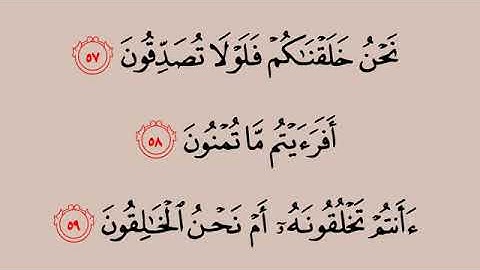 نَحْنُ خَلَقْنَٰكُمْ فَلَوْلَا تُصَدِّقُونَ ٥٧
أَفَرَءَيْتُم مَّا تُمْنُونَ ٥٨
ءَأَنتُمْ تَخْلُقُونَهُۥٓ أَمْ نَحْنُ ٱلْخَٰلِقُونَ ٥٩